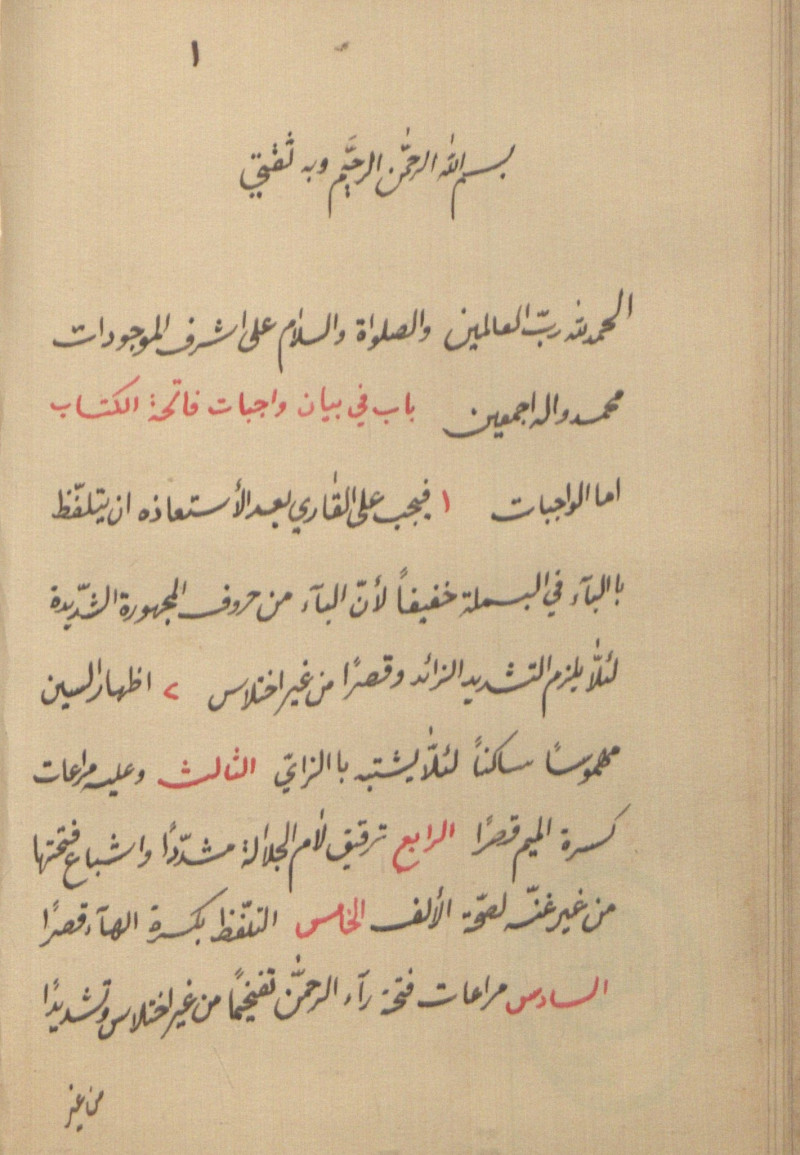 ١
بسم الله الرحمٰن الرحيَّم وبه ثقتي
الحمد لله ربّ العالمين والصلواة والسلام على اشرف الموجودات
محمد واله اجمعين باب في بيان واجبات فاتحة الكتاب
اما الواجبات ١ فيجب على القاري بعد الأستعاذه ان يتلفّظ
با البآء في البسملة خفيفاً لأنّ البآء من حروف المجهورة الشّديدة
لئلّا يلزم التشديد الزائد وقصرًا من غير اختلاس ٢ اظهار السين
مهموسًا ساكناً لئلّا يشتبه با الزايّ الثالث وعليه مراعات
كسرة الميم قصرًا الرابع ترقيق لام الجلالة مشدّدًا واشباع فتحتها
من غير غنّه لصحّة الألف الخامس التلّفظ بكسرة الهآء قصرًا
السادس مراعات فتحة رآء الرحمٰن تفخيمًا من غير اختلاس وتشديدًا
من غير